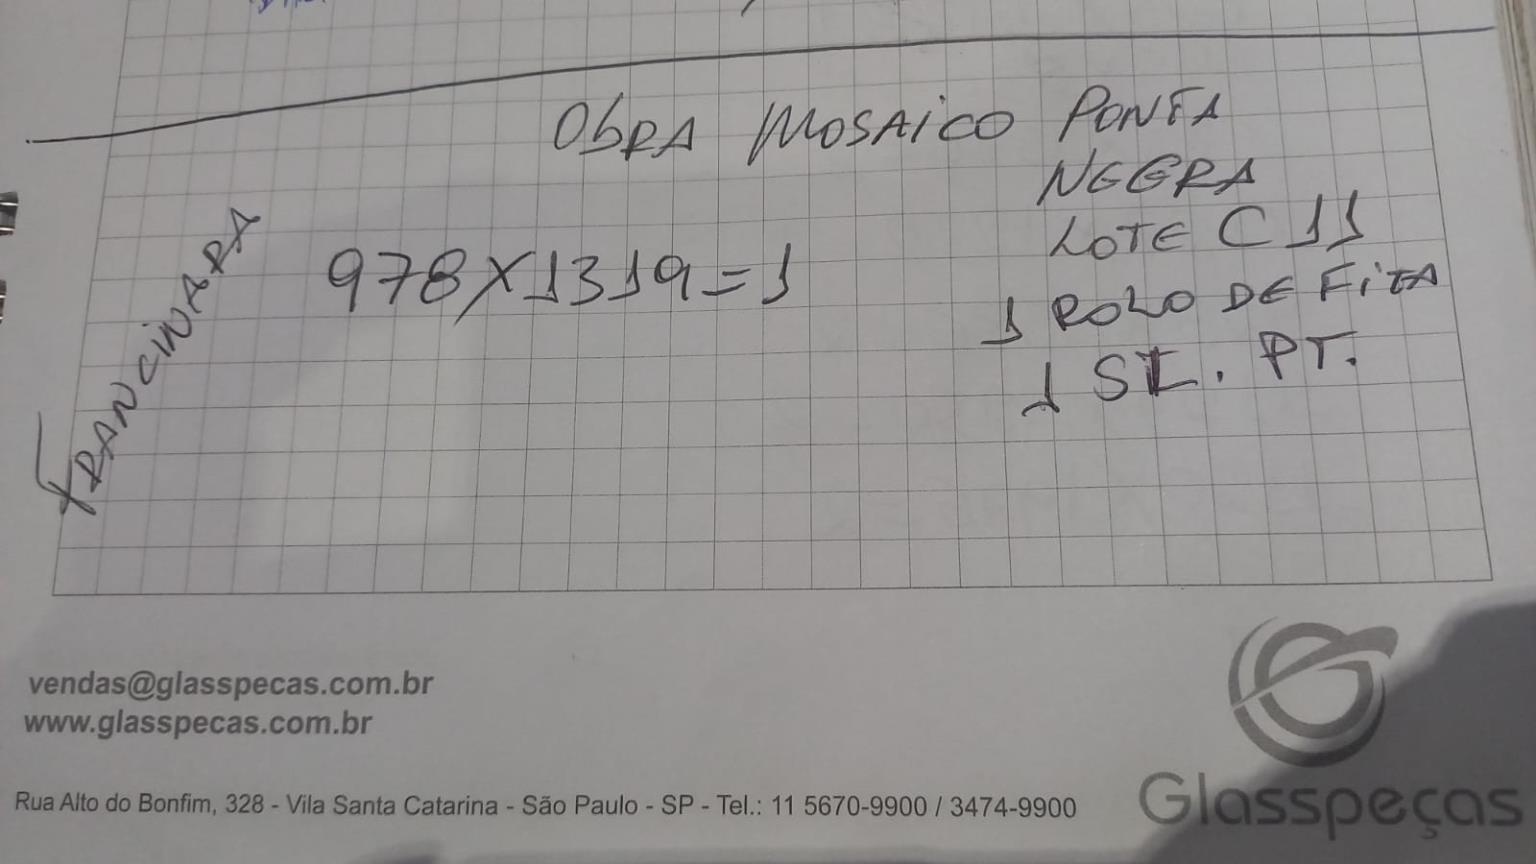 OBRA MOSAICO PONTA
NEGRA
LOTE C 11
FRANCINARA
978X1319=1
1 ROLO DE FITA
1 SL. PT.
vendas@glasspecas.com.br
www.glasspecas.com.br
Rua Alto do Bonfim, 328 - Vila Santa Catarina - São Paulo - SP - Tel.: 11 5670-9900 / 3474-9900
Glasspeças